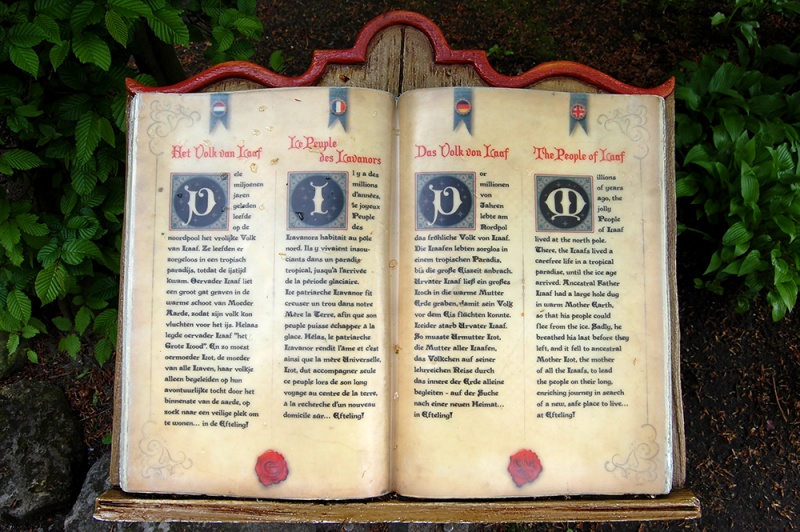 Het Volk van Laaf
Vele
miljoenen
jaren
geleden
leefde
op de
noordpool het vrolijke Volk
van Laaf. Ze leefden er
zorgeloos in een tropisch
paradijs, totdat de ijstijd
kwam. Oervader Laaf liet
een groot gat graven in de
warme schoot van Moeder
Aarde, zodat zijn volk kon
vluchten voor het ijs. Helaas
legde oervader Laaf "het
Grote Lood". En zo moest
oermoeder Lot, de moeder
van alle Laven, haar volkje
alleen begeleiden op hun
avontuurlijke tocht door het
binnenste van de aarde, op
zoek naar een veilige plek om
te wonen... in de Efteling!
Le Peuple
des Lavanors
Il y a des
millions
d'années,
le joyeux
Peuple
des
Lavanors habitait au pôle
nord. Ils y vivaient insou-
ciants dans un paradis
tropical, jusqu'à l'arrivée
de la période glaciaire.
Le patriarche Lavanor fit
creuser un trou dans notre
Mère la Terre, afin que son
peuple puisse échapper à la
glace. Hélas, le patriarche
Lavanor rendit l'âme et c'est
ainsi que la mère Universelle,
Lot, dut accompagner seule
ce peuple lors de son long
voyage au centre de la terre,
à la recherche d'un nouveau
domicile sûr... Efteling!
Das Volk von Laaf
Vor
millionen
von
Jahren
lebte am
Nordpol
das fröhliche Volk von Laaf.
Die Laafen lebten sorglos in
einem tropischen Paradis,
bis die große Eiszeit anbrach.
Urvater Laaf ließ ein großes
Loch in die warme Mutter
Erde graben, damit sein Volk
vor dem Eis flüchten konnte.
Leider starb Urvater Laaf.
So musste Urmutter Lot,
die Mutter aller Laafen,
das Völkchen auf seiner
lehrreichen Reise durch
das innere der Erde alleine
begleiten - auf der Suche
nach einer neuen Heimat...
in Efteling!
The People of Laaf
Millions
of years
ago, the
jolly
People
of Laaf
lived at the north pole.
There, the Laafs lived a
carefree life in a tropical
paradise, until the ice age
arrived. Ancestral Father
Laaf had a large hole dug
in warm Mother Earth,
so that his people could
flee from the ice. Sadly, he
breathed his last before they
left, and it fell to ancestral
Mother Lot, the mother
of all the Laafs, to lead
the people on their long,
enriching journey in search
of a new, safe place to live...
at Efteling!